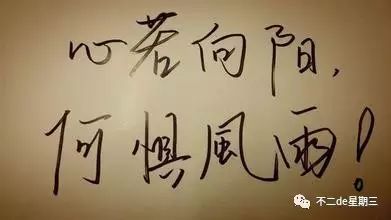 心若向阳，
何惧風雨！
不二de星期三